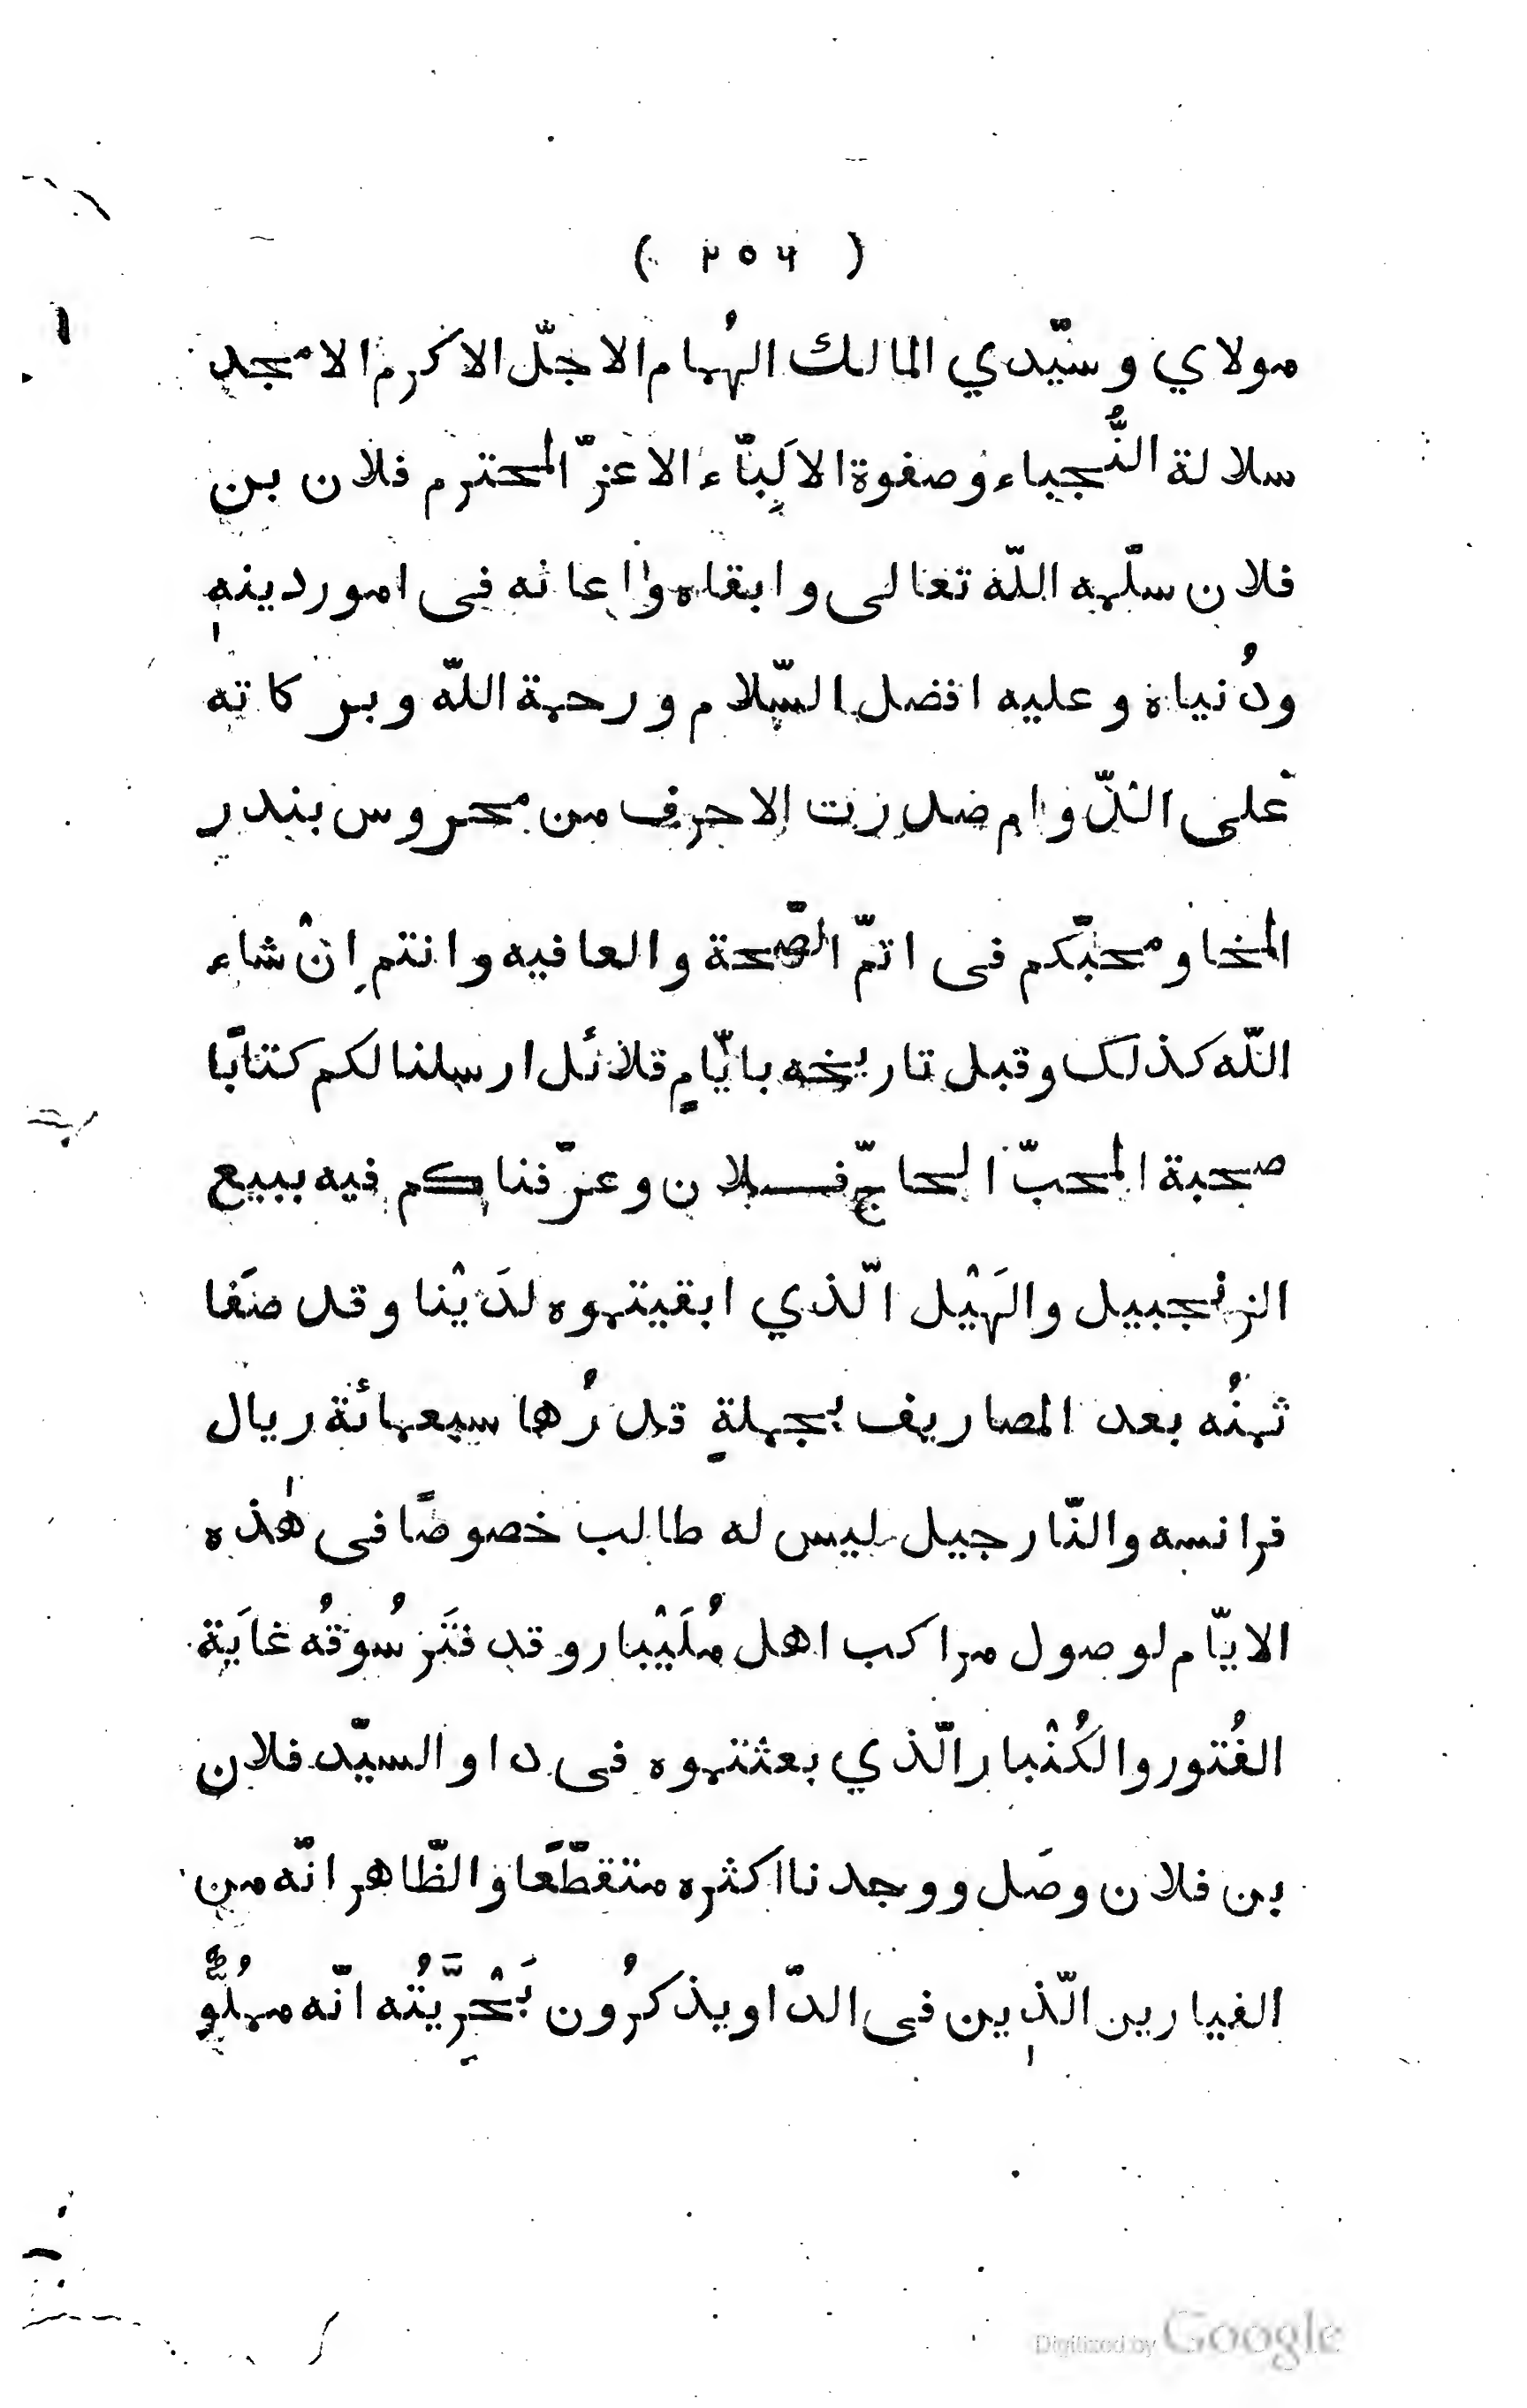 ( ٢٥٦ )
مولاي وسيّدي المالك الهُمام الاجلّ الاكرم الامجد
سلالة النُّجباء وصفوة الالَبِّاء الاعزّ المحترم فلان بن
فلان سلّمه اللّه تعالى وابقاه واعانه فى امور دينه
ودُنياه وعليه افضل السّلام ورحمة اللّه وبركاته
على الدّوام صدرت الاحرف من محروس بندر
المخا ومحبّكم فى اتمّ الصّحة والعافيه وانتم اِنْ شاء
اللّه كذلك وقبل تاريخه بايّامٍ قلائل ارسلنا لكم كتابًا
صحبة المحبّ الحاجّ فلان وعرّفناكم فيه ببيع
الزنجبيل والهَيْل الّذي ابقيتموه لدَيْنا وقد صَفا
ثمنُه بعد المصاريف بجملةٍ قدرُها سبعمائة ريال
فرانسه والنّارجيل ليس له طالب خصوصًا فى هٰذه
الايّام لوصول مراكب اهل مُلَيْبار وقد فتَر سُوقُه غايَة
الفُتور والكُنْبار الّذي بعثتموه فى داو السيّد فلان
بن فلان وصَل ووجدنا اكثره متقطّعًا والظّاهر انّه من
الفيارين الّذين فى الدّاو يذكرُون بَحْرِيَّتُه انّه مملُوٌّ
Digitized by Google